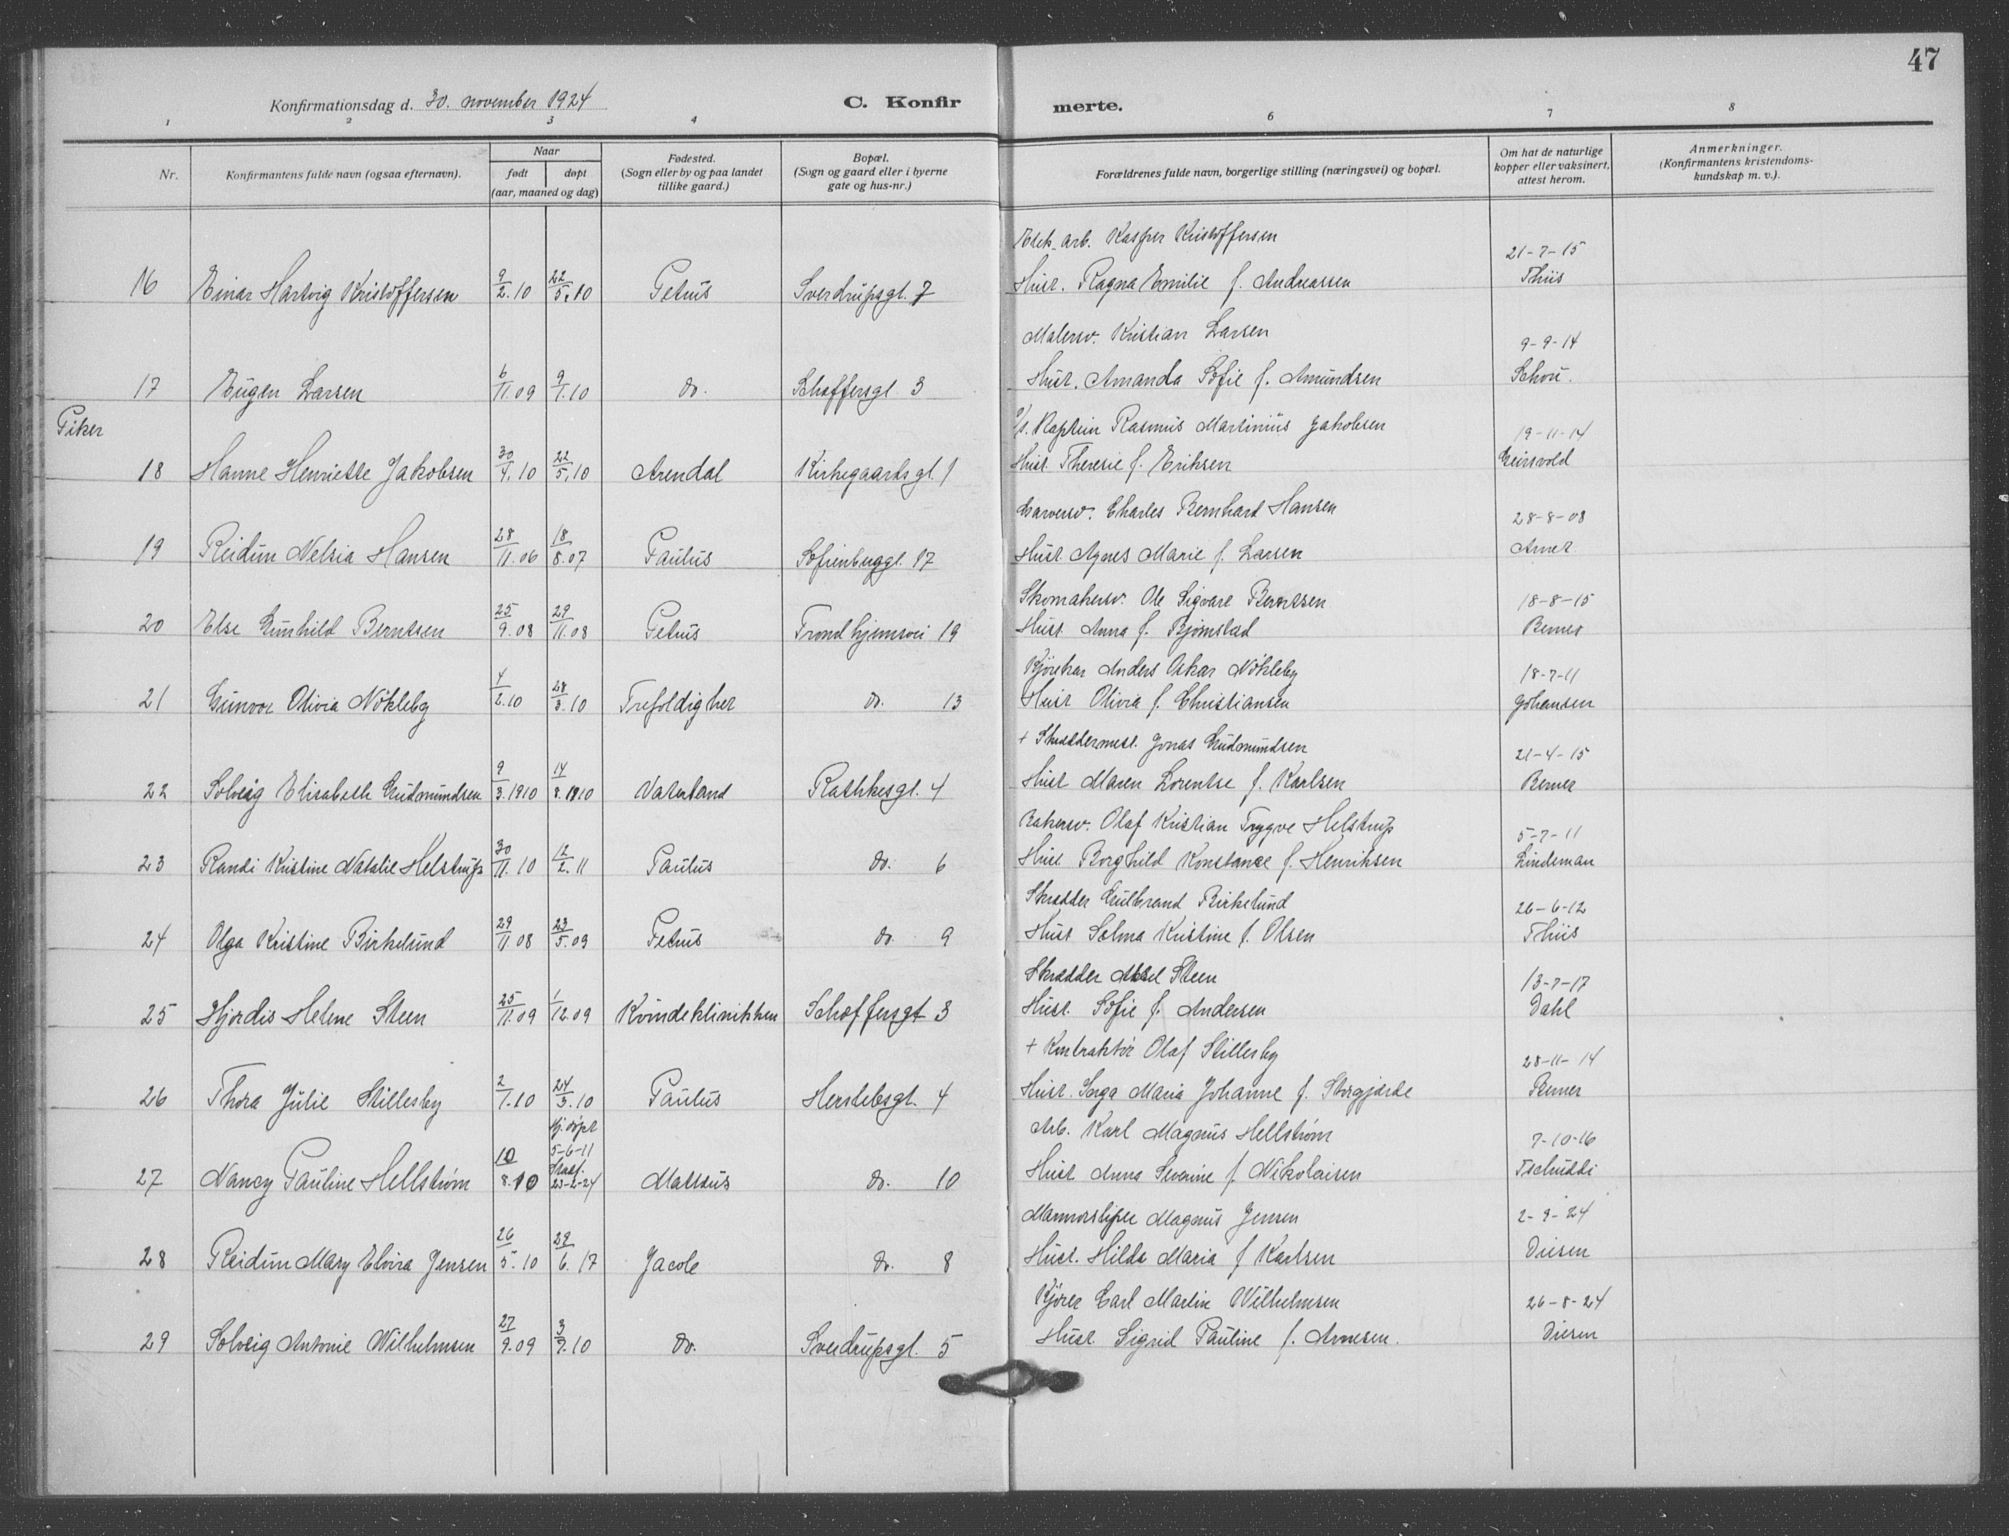 47
Konfirmationsdag d. 30. november 1924
C. Konfirmerte.
1 2 3 4 6 7 8
Nr.
Konfirmantens fulde navn (ogsaa efternavn).
Naar
født
døpt
(aar, maaned og dag)
Fødested.
(Sogn eller by og paa landet
tillike gaard.)
Bopæl.
(Sogn og gaard eller i byerne
gate og hus-nr.)
Forældrenes fulde navn, borgerlige stilling (næringsvei) og bopæl.
Om hat de naturlige
kopper eller vaksinert,
attest herom.
Anmerkninger.
(Konfirmantens kristendoms-
kundskap m. v.).
Elek. arb. Kasper Kristoffersen 21-7-15
16 Einar Hartvig Kristoffersen 9/2.10 22/5.10 Petrus Sverdrupsgt. 7 Hust. Ragna Emilie f. Andreassen Thiis
Malersv. Kristian Larsen 9-9-14
17 Eugen Larsen 6/11.09 9/1.10 do. Schoffersgt. 3 Hust. Amanda Sofie f. Amundsen Schou.
Piker
Kaptein Rasmus Martinius Jakobsen 19-11-14
18 Hanne Henriette Jakobsen 30/4.10 22/5.10 Arendal Kirkegaardsgt. 1 Hust. Theresie f. Eriksen Geirsvold
Garversv. Charles Bernhard Hansen 28-8-08
19 Reidun Nelsia Hansen 28/11.06 18/8.07 Paulus Sofienberggt. 17 Hust. Agnes Marie f. Larsen
Skomakersv. Ole Sigvart Berntsen 18-8-15
20 Else Gunhild Berntsen 25/9.08 29/11.08 Petrus Trondhjemsvei 19 Hust. Anna f. Bjørnstad Berner
Kjørekar Anders Oskar Nökleby 18-7-11
21 Gunvor Olivia Nökleby 4/2.10 28/3.10 Trefoldighet do. 13 Hust Olivia f. Christiansen Johansen
+ Skreddermest. Jonas Gudmundsen 21-4-15
22 Solveig Elisabeth Gudmundsen 9/3.1910 14/8.1910 Vaterland Rathkesgt. 4 Hust Maren Lorentse f. Karlsen Berner
Bakersv. Olaf Kristian Trygve Helstrup 5-7-11
23 Randi Kristine Natalie Helstrup 30/11.10 12/2.11 Paulus do. 6 Hust Borghild Konstance f. Henriksen Lindeman
Skredder Gulbrand Birkelund 26-6-12
24 Olga Kristine Birkelund 29/11.08 23/5.09 Petrus do. 9 Hust Selma Kristine f. Olsen Thiis
Skredder Aksel Steen 13-7-17
25 Hjørdis Helene Steen 25/11.09 1/12.09 Kvindeklinikken Schoffersgt 3 Hust. Sofie f. Andersen Dahl
+ Kontraktör Olaf Stillesby 28-11-14
26 Thora Julie Stillesby 2/1.10 24/3.10 Paulus Herslebsgt. 4 Hust. Inga Maria Johanne f. Storgjærde
Arb. Karl Magnus Hellstrøm 7-10-16
27 Nancy Pauline Hellstrøm 10/8.10 hj. døpt 5-6-11 Stadf. 23-2-24 Matteus do. 10 Hust Anna Severine f. Nikolaisen Tschuddi
Marmorsliper Magnus Jensen 2-9-24
28 Reidun Mary Elvira Jensen 26/5.10 29/6.17 Jacob do. 8 Hust. Hilda Maria f Karlsen Diesen
Kjører Carl Martin Wilhelmsen 26-8-24
29 Solveig Antonie Wilhelmsen 27/9.09 3/7.10 do. Sverdrupsgt. 5 Hust. Sigrid Pauline f. Arnesen. Diesen